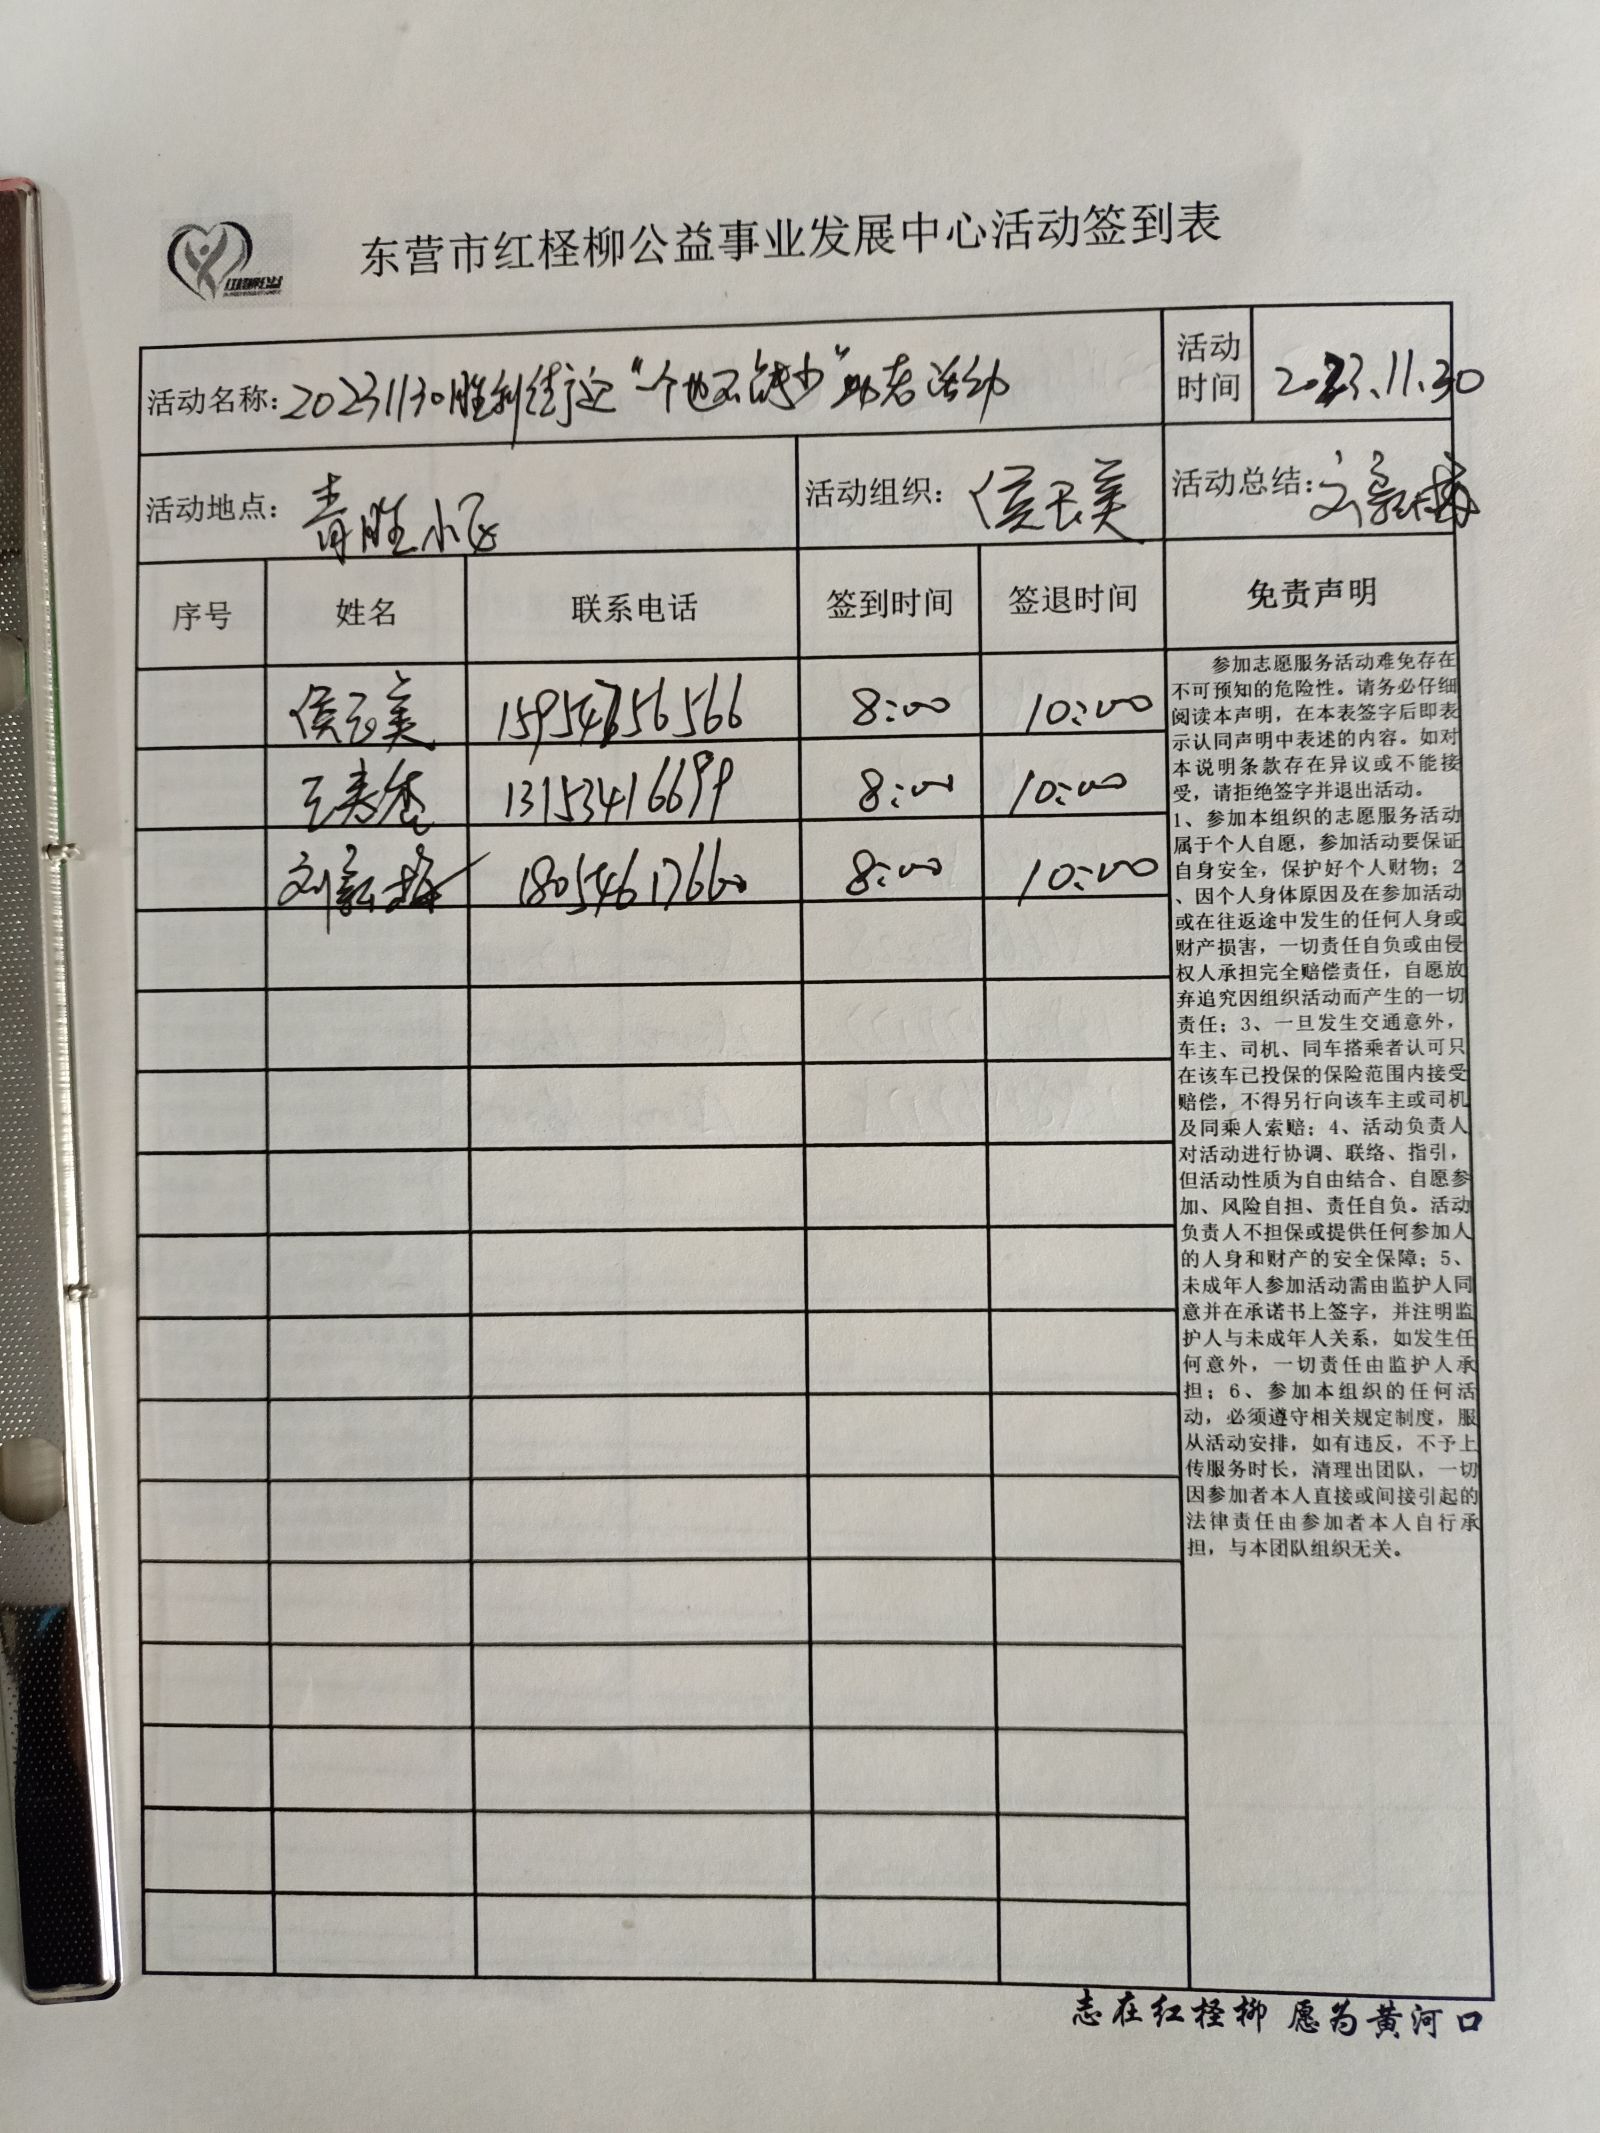 红柽柳公益
东营市红柽柳公益事业发展中心活动签到表
活动名称：20231130胜利街道“一个也不能少”助老活动
活动时间
2023.11.30
活动地点：青胜小区
活动组织：侯玉美
活动总结：刘梅
序号 姓名 联系电话 签到时间 签退时间 免责声明
侯玉美 15954656566 8:00 10:00
王秀 13153416699 8:00 10:00
刘梅 18054617660 8:00 10:00
参加志愿服务活动难免存在
不可预知的危险性。请务必仔细
阅读本声明，在本表签字后即表
示认同声明中表述的内容。如对
本说明条款存在异议或不能接
受，请拒绝签字并退出活动。
1、参加本组织的志愿服务活动
属于个人自愿，参加活动要保证
自身安全，保护好个人财物；2
、因个人身体原因及在参加活动
或在往返途中发生的任何人身或
财产损害，一切责任自负或由侵
权人承担完全赔偿责任，自愿放
弃追究因组织活动而产生的一切
责任；3、一旦发生交通意外，
车主、司机、同车搭乘者认可只
在该车已投保的保险范围内接受
赔偿，不得另行向该车主或司机
及同乘人索赔；4、活动负责人
对活动进行协调、联络、指引，
但活动性质为自由结合、自愿参
加、风险自担、责任自负。活动
负责人不担保或提供任何参加人
的人身和财产的安全保障；5、
未成年人参加活动需由监护人同
意并在承诺书上签字，并注明监
护人与未成年人关系，如发生任
何意外，一切责任由监护人承
担；6、参加本组织的任何活
动，必须遵守相关规定制度，服
从活动安排，如有违反，不予上
传服务时长，清理出团队，一切
因参加者本人直接或间接引起的
法律责任由参加者本人自行承
担，与本团队组织无关。
志在红柽柳 愿为黄河口